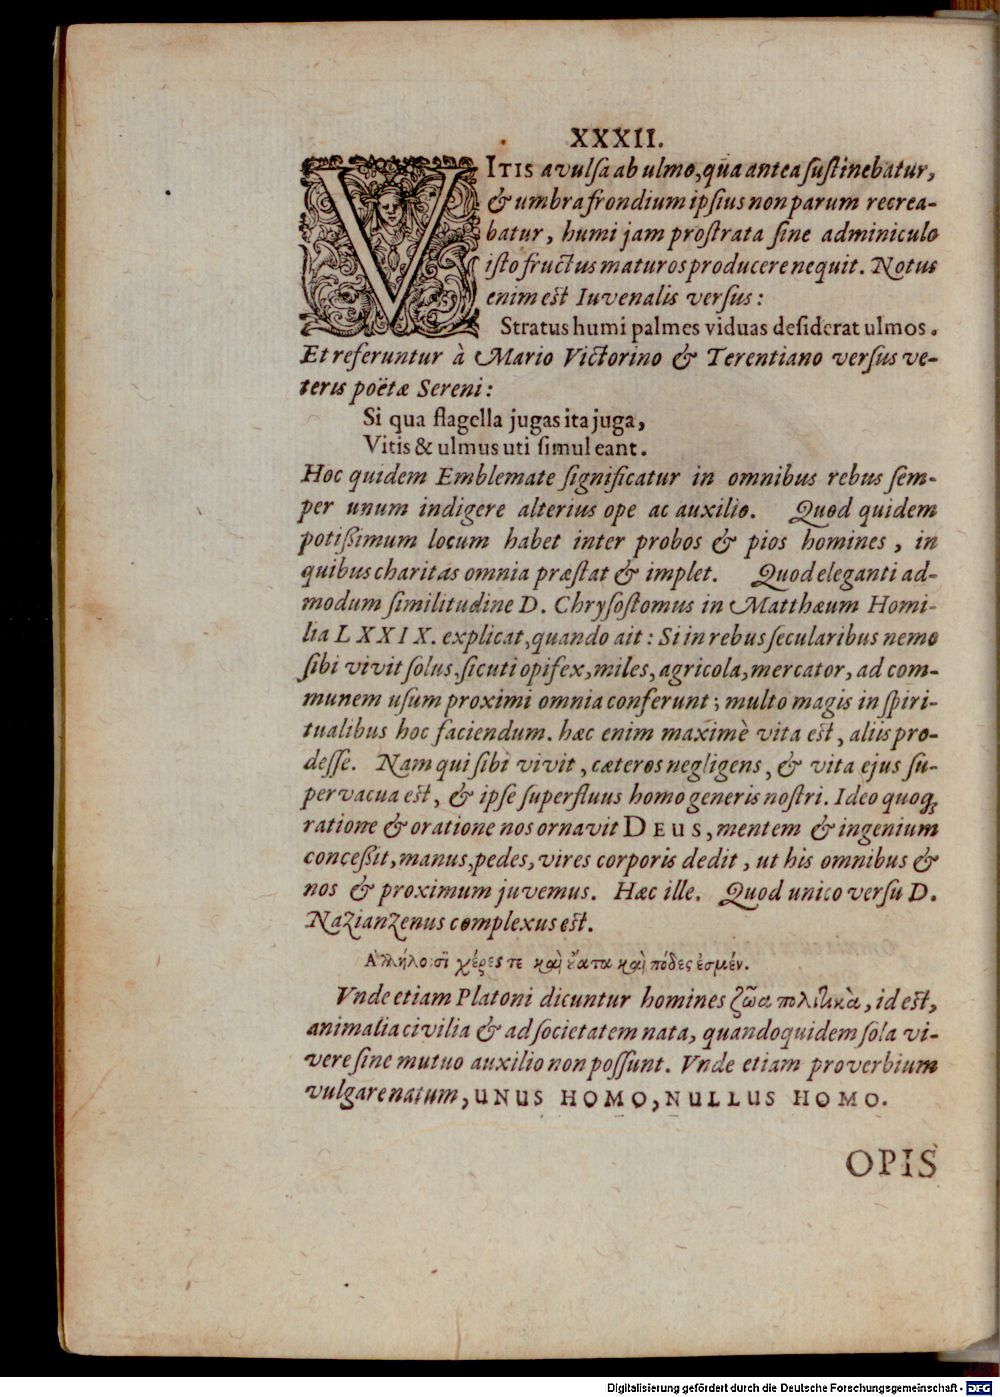 XXXII.
VITIS avulsa ab ulmo, qua antea sustinebatur,
& umbra frondium ipsius non parum recrea-
batur, humi jam prostrata sine adminiculo
isto fructus maturos producere nequit. Notus
enim est Iuvenalis versus:
Stratus humi palmes viduas desiderat ulmos.
Et referuntur à Mario Victorino & Terentiano versus ve-
teris poëtæ Sereni:
Si qua flagella jugas ita juga,
Vitis & ulmus uti simul eant.
Hoc quidem Emblemate significatur in omnibus rebus sem-
per unum indigere alterius ope ac auxilio. Quod quidem
potißimum locum habet inter probos & pios homines, in
quibus charitas omnia præstat & implet. Quod eleganti ad-
modum similitudine D. Chrysostomus in Matthæum Homi-
lia LXXIX. explicat, quando ait: Si in rebus secularibus nemo
sibi vivit solus, sicuti opifex, miles, agricola, mercator, ad com-
munem usum proximi omnia conferunt; multo magis in spiri-
tualibus hoc faciendum. hæc enim maximè vita est, aliis pro-
desse. Nam qui sibi vivit, cæteros negligens, & vita ejus su-
pervacua est, & ipse superfluus homo generis nostri. Ideo quoq;
ratione & oratione nos ornavit DEUS, mentem & ingenium
conceßit, manus, pedes, vires corporis dedit, ut his omnibus &
nos & proximum juvemus. Hæc ille. Quod unico versu D.
Nazianzenus complexus est.
Ἀλλήλοισι χέρες τε καὶ ὄατα καὶ πόδες ἐσμέν.
Vnde etiam Platoni dicuntur homines ζῶα πολιτικὰ, id est,
animalia civilia & ad societatem nata, quandoquidem sola vi-
vere sine mutuo auxilio non possunt. Vnde etiam proverbium
vulgare natum, UNUS HOMO, NULLUS HOMO.
OPIS
Digitalisierung gefördert durch die Deutsche Forschungsgemeinschaft - DFG